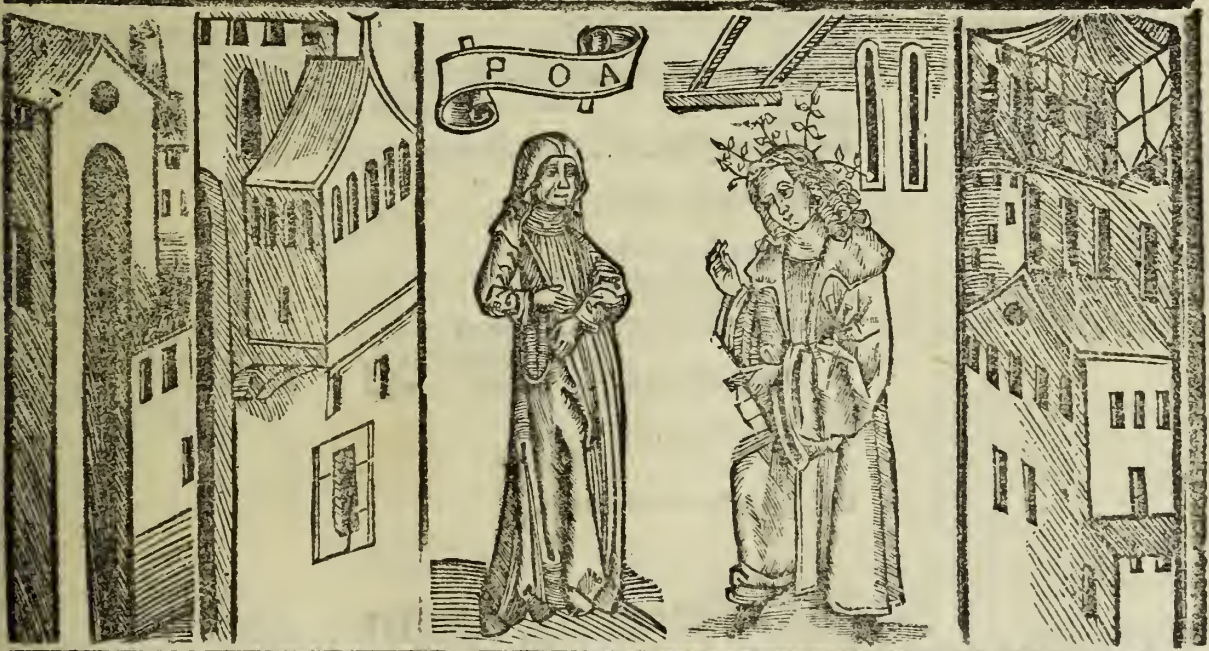 P O A